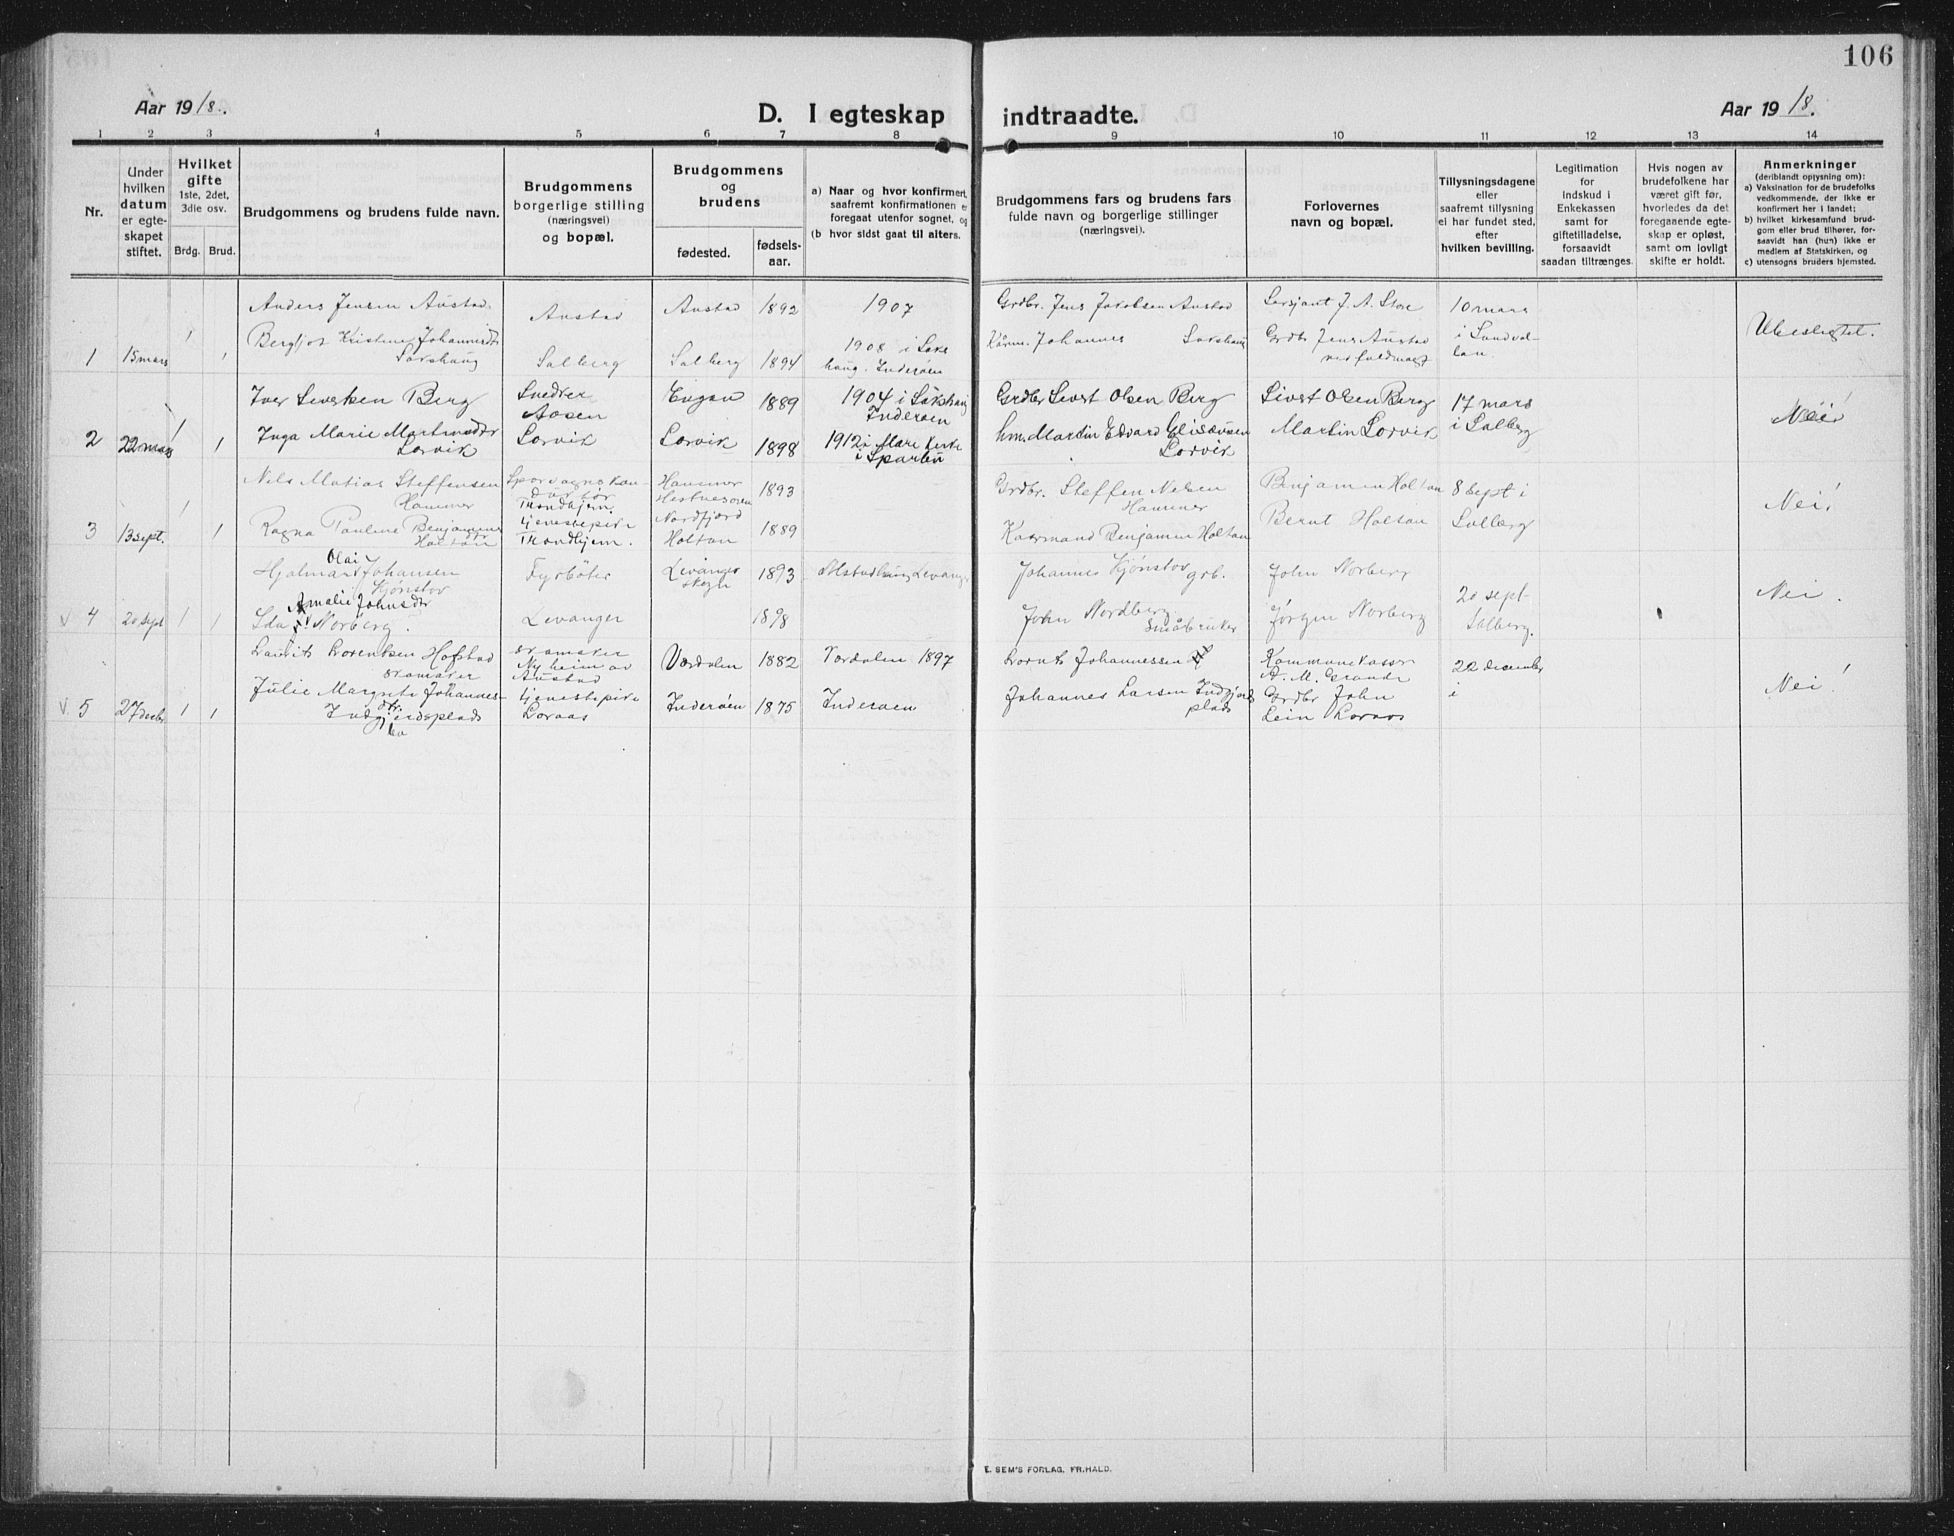 106
Aar 1918.
D. I egteskap indtraadte.
Aar 1918.
1 2 3 4 5 6 7 8 9 10 11 12 13 14
Nr.
Under hvilken datum er egte-skapet stiftet.
Hvilket gifte
1ste, 2det, 3die osv.
Brdg. Brud.
Brudgommens og brudens fulde navn.
Brudgommens borgerlige stilling (næringsvei) og bopæl.
Brudgommens og brudens
fødested.
fødsels-aar.
a) Naar og hvor konfirmert, saafremt konfirmationen er foregaat utenfor sognet, og
(b hvor sidst gaat til alters.
Brudgommens fars og brudens fars fulde navn og borgerlige stillinger (næringsvei).
Forlovernes navn og bopæl.
Tillysningsdagene eller saafremt tillysning ei har fundet sted, efter hvilken bevilling.
Legitimation for indskud i Enkekassen samt for giftetilladelse, forsaavidt saadan tiltrænges.
Hvis nogen av brudefolkene har været gift før, hvorledes da det foregaaende egte-skap er opløst, samt om lovligt skifte er holdt.
Anmerkninger
(deriblandt oplysning om):
a) Vaksination for de brudefolks vedkommende, der ikke er konfirmert her i landet;
b) hvilket kirkesamfund brud-gom eller brud tilhører, for-saavidt han (hun) ikke er medlem af Statskirken, og
c) utensogns bruders hjemsted.
Anders Jensen Austad. Austad Austad 1892 1907 Grdbr. Jens Jakobsen Austad Sersjant J. A. Stoe 10 mars
1 15 mars 1 1 Bergljot Kristine Johannesdtr Sakshaug Salberg Salberg 1894 1908 i Saks haug. Inderøen Johannes Sakshaug Grdbr Jens Austad i Sundvol- lan. Ubeslegtet.
Iver Sivertsen Berg Aasen 1889 1904 i Sakshaug Inderøen Grdbr Sivert Olsen Berg Sivert Olsen Berg 17 mars i Salberg
2 22 mars 1 1 Inga Marie Martinsdtr Lorvik Lorvik Lorvik 1898 1912 i Mære Kirke i Sparbu Martin Edvard Eliseusen Lorvik Martin Lorvik Nei
Nils Matias Steffensen Hammer Sporvognskon- duktør Trondhjem. Hammer 1893 Grdbr. Steffen Nelsen Hammer Benjamin Holtan 8 sept i Salberg
3 13 sept. 1 1 Ragna Pauline Benjamins dtr Holtan tjenestepike Trondhjem. Nordfjord Holtan 1889 Kaarmand Benjamin Holtan Bernt Holtan Nei.
Hjalmar Olai Johansen Hjønstov Fyrbøter Levanger skogn 1893 Alstadhaug Levanger Johannes Hjønstov grb. John Norberg 20 sept
v 4 20 sept 1 1 Ida Amalie Johnsdtr Norberg. Levanger 1898 John Nordberg Småbruker Jørgen Norberg Salberg. Nei.
Laurits Lorentsen Hofstad skomaker skomaker Nyheim av Austad Værdalen 1882 Værdalen 1897 Lornts Johannessen Kommunekasser A. M. Grande 22 december
v. 5 27 decbr 1 1 Julie Margrete Johannes- dtr. Indgjerdsplads tjenestepike Loraas Inderøen 1875 Inderøen Johannes Larsen Indgjerds plads Grdbr John Lein Loraas i Nei!
E. SEM'S FORLAG, FR.HALD.